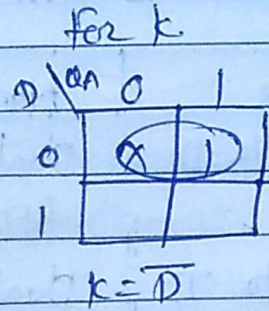 for K
D \ QA 0 1
0 X 1
1
K = D̅